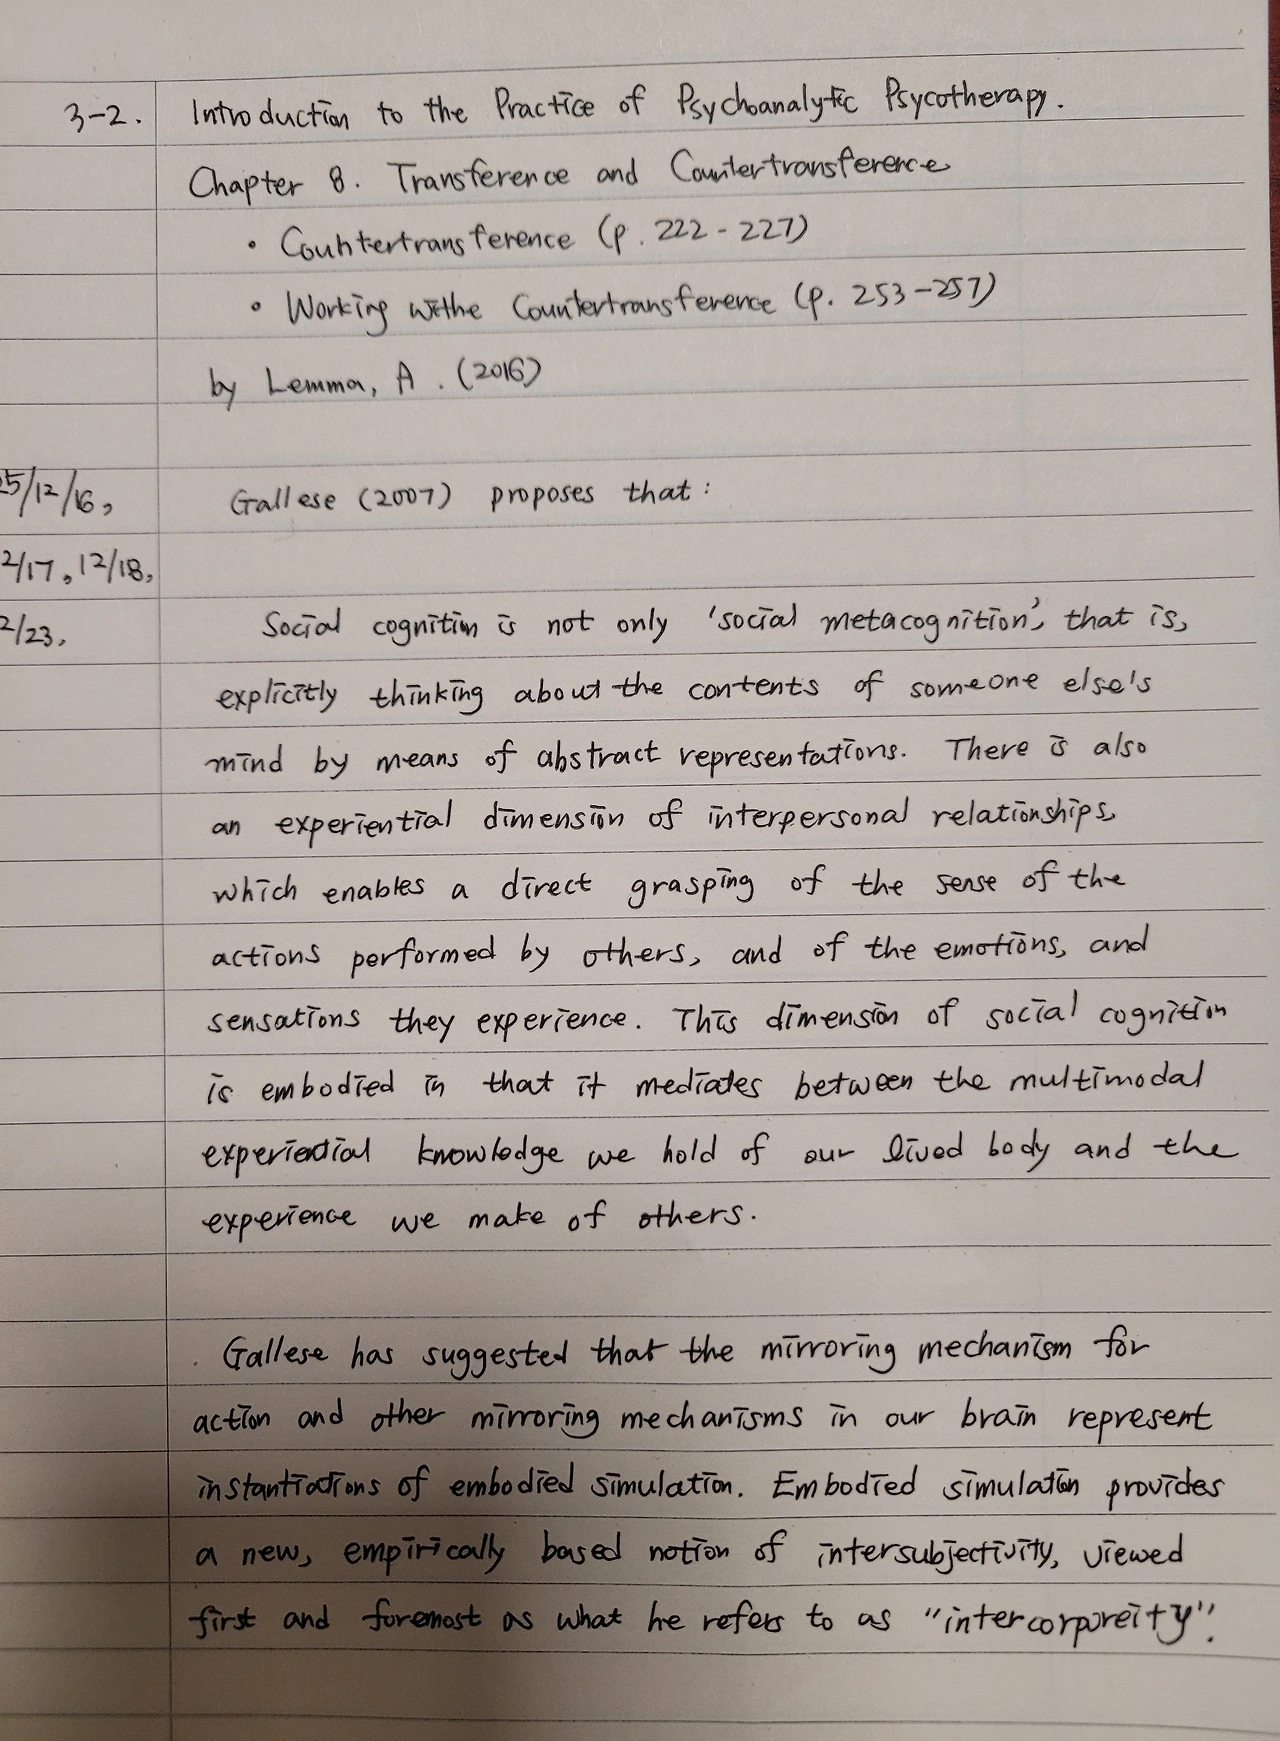 3-2. Introduction to the Practice of Psychoanalytic Psycotherapy.
Chapter 8. Transference and Countertransference
• Countertransference (p. 222-227)
• Working withe Countertransference (p. 253-257)
by Lemma, A. (2016)
25/12/16, Gallese (2007) proposes that:
2/17, 12/18,
2/23, Social cognition is not only 'social metacognition', that is,
explicitly thinking about the contents of someone else's
mind by means of abstract representations. There is also
an experiential dimension of interpersonal relationships,
which enables a direct grasping of the sense of the
actions performed by others, and of the emotions, and
sensations they experience. This dimension of social cognition
is embodied in that it mediates between the multimodal
experiential knowledge we hold of our lived body and the
experience we make of others.
Gallese has suggested that the mirroring mechanism for
action and other mirroring mechanisms in our brain represent
instantiations of embodied simulation. Embodied simulation provides
a new, empirically based notion of intersubjectivity, viewed
first and foremost as what he refers to as "intercorporeity".